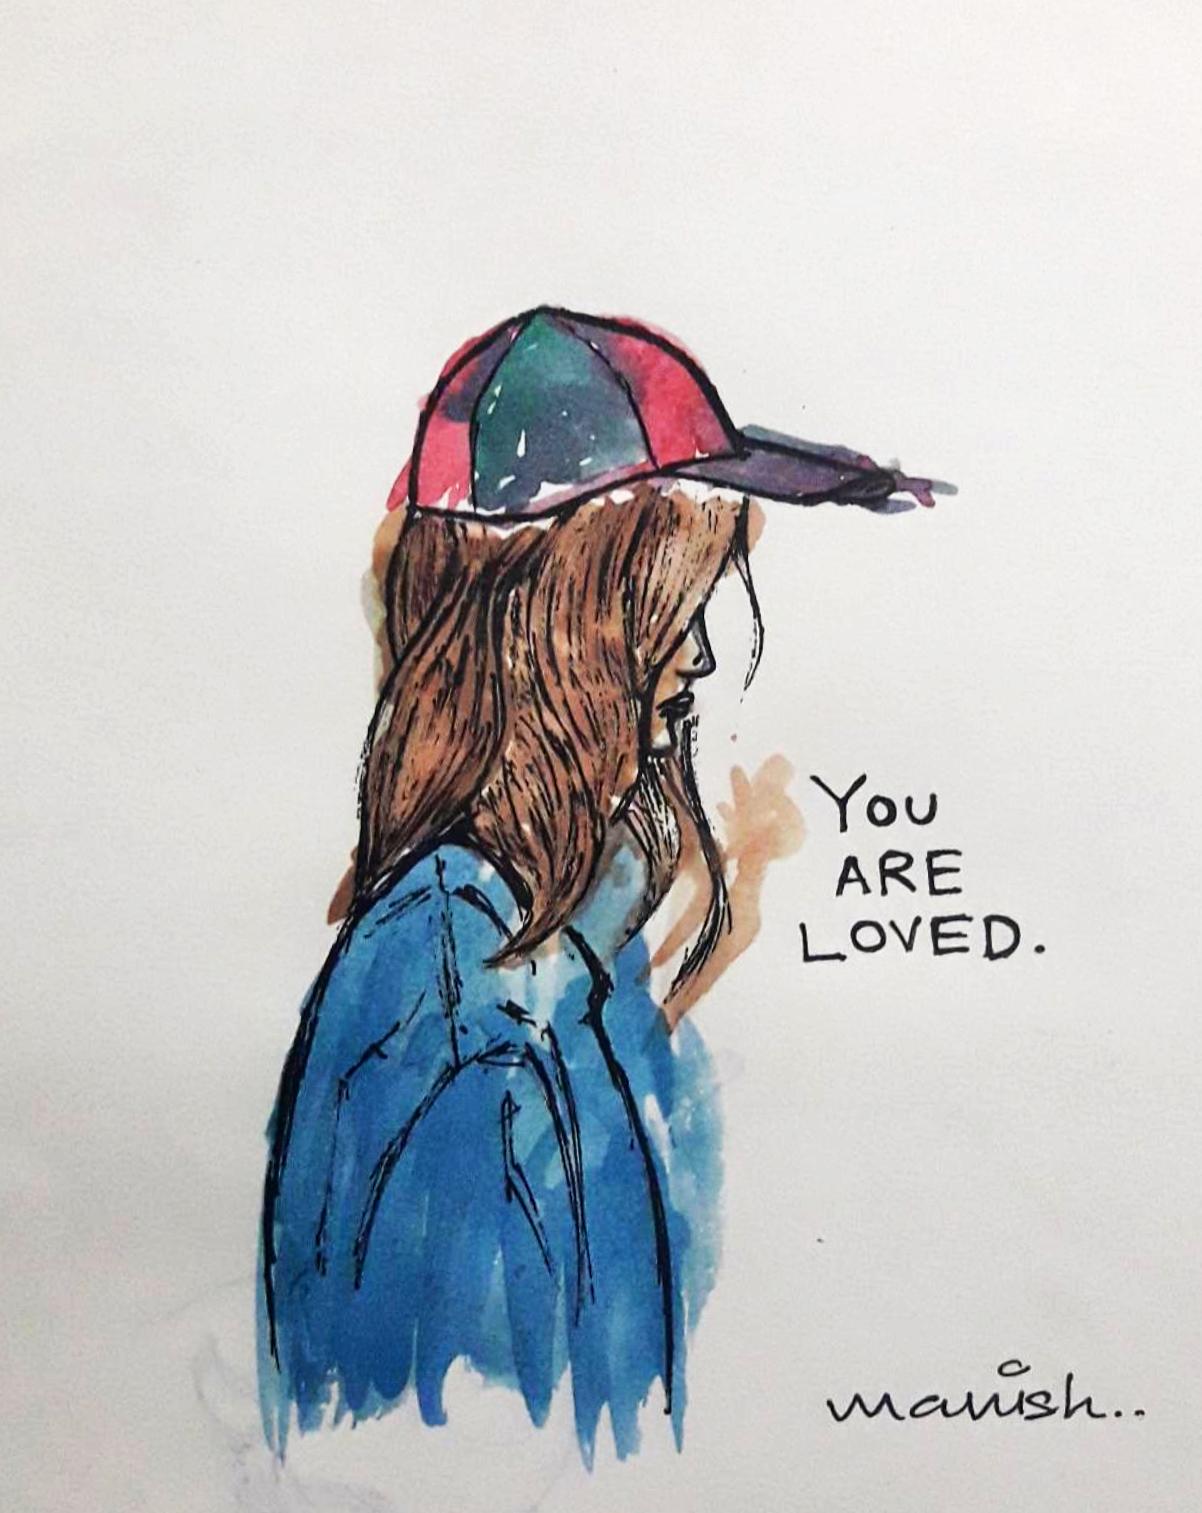 YOU
ARE
LOVED.
manish..